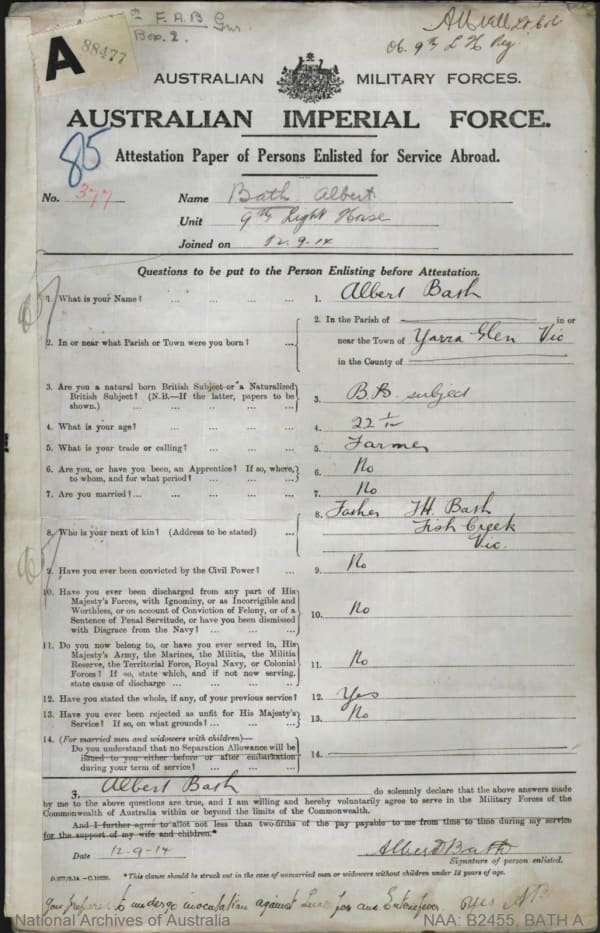 F.A.B Gnr.
Box. 2.
A 88477
Ob. 9th L H Reg
AUSTRALIAN MILITARY FORCES.
AUSTRALIAN IMPERIAL FORCE.
85
Attestation Paper of Persons Enlisted for Service Abroad.
No. 377 Name Bath Albert
Unit 9th Light Horse
Joined on 12.9.14
Questions to be put to the Person Enlisting before Attestation.
1. What is your Name? ... ... ... ... 1. Albert Bath
2. In or near what Parish or Town were you born? ... 2. In the Parish of in or
near the Town of Yarra Glen Vic
in the County of
3. Are you a natural born British Subject or a Naturalized
British Subject? (N.B.—If the latter, papers to be
shown.) ... ... ... ... ... 3. B.B. subject
4. What is your age? ... ... ... ... 4. 22 1/12
5. What is your trade or calling? ... ... ... 5. Farmer
6. Are you, or have you been, an Apprentice? If so, where,
to whom, and for what period? ... ... ... 6. No
7. Are you married? ... ... ... ... ... 7. No
8. Who is your next of kin? (Address to be stated) ... 8. Father T.H. Bath
Fish Creek
Vic.
9. Have you ever been convicted by the Civil Power? ... 9. No
10. Have you ever been discharged from any part of His
Majesty's Forces, with Ignominy, or as Incorrigible and
Worthless, or on account of Conviction of Felony, or of a
Sentence of Penal Servitude, or have you been dismissed
with Disgrace from the Navy? ... ... ... 10. No
11. Do you now belong to, or have you ever served in, His
Majesty's Army, the Marines, the Militia, the Militia
Reserve, the Territorial Force, Royal Navy, or Colonial
Forces? If so, state which, and if not now serving,
state cause of discharge ... ... ... ... 11. No
12. Have you stated the whole, if any, of your previous service? 12. Yes
13. Have you ever been rejected as unfit for His Majesty's
Service? If so, on what grounds? ... ... ... 13. No
14. (For married men and widowers with children)—
Do you understand that no Separation Allowance will be
issued to you either before or after embarkation
during your term of service? ... ... ... 14.
I, Albert Bath do solemnly declare that the above answers made
by me to the above questions are true, and I am willing and hereby voluntarily agree to serve in the Military Forces of the
Commonwealth of Australia within or beyond the limits of the Commonwealth.
And I further agree to allot not less than two-fifths of the pay payable to me from time to time during my service
for the support of my wife and children.*
Date 12-9-14 Albert Bath
Signature of person enlisted.
D.277/9.14.—C.10220. *This clause should be struck out in the case of unmarried men or widowers without children under 18 years of age.
prepared to undergo inoculation against Small pox and Enteric fever. Yes AB
National Archives of Australia NAA: B2455, BATH A